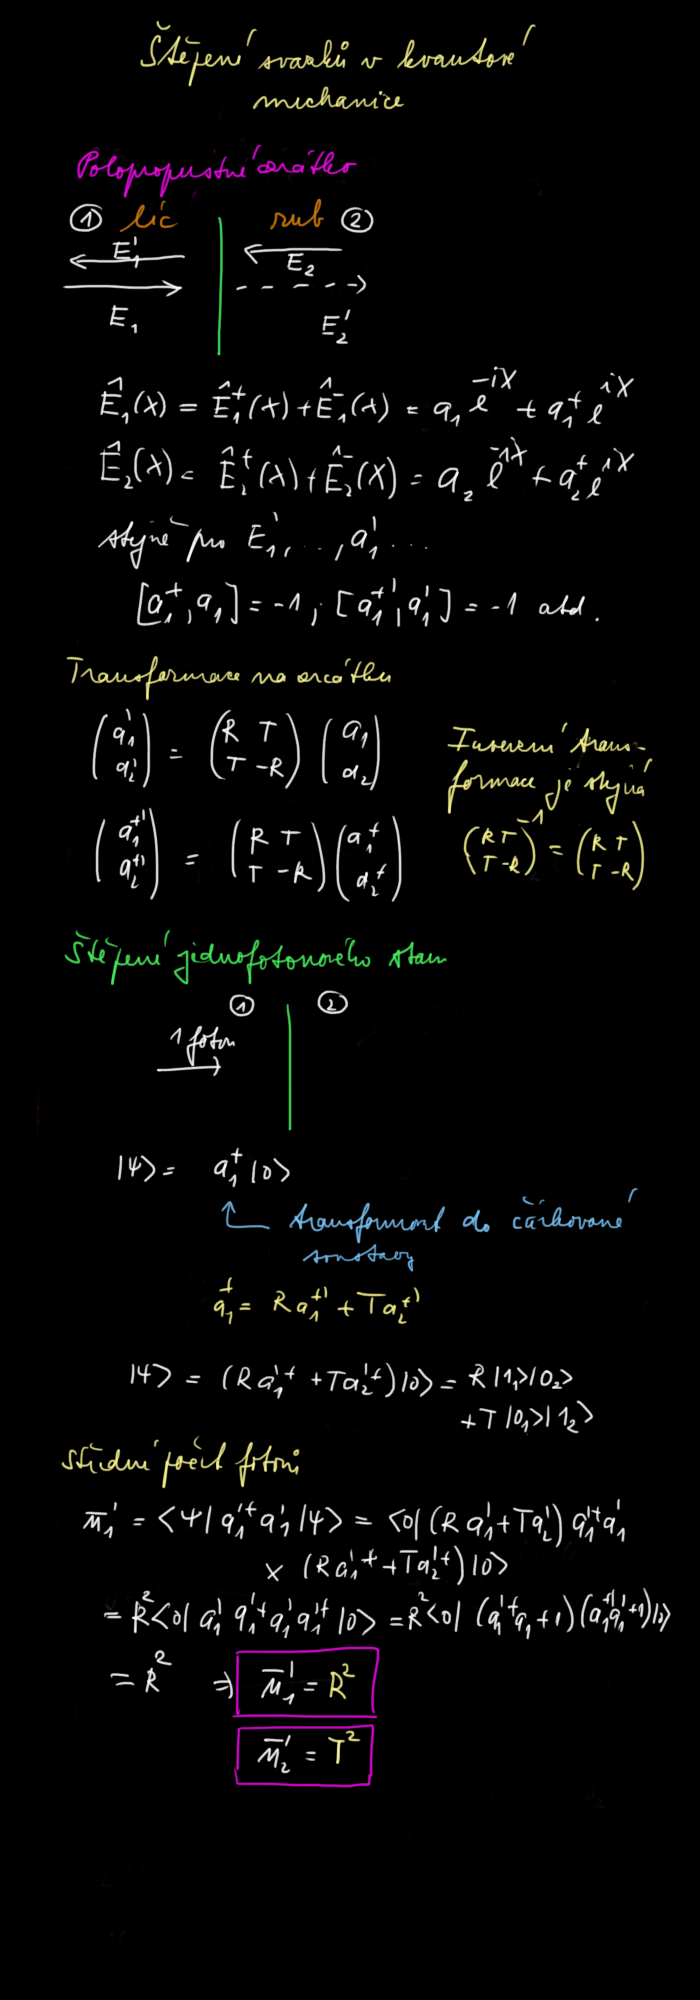 Štěpení svazků v kvantové
mechanice
Polopropustné zrcátko
① líc rub ②
E₁' E₂
E₁ E₂'
Ê₁(X) = Ê₁⁺(X) + Ê₁⁻(X) = a₁ e^{-iX} + a₁⁺ e^{iX}
Ê₂(X) = Ê₂⁺(X) + Ê₂⁻(X) = a₂ e^{-iX} + a₂⁺ e^{iX}
stejně pro E₁', ..., a₁' ...
[a₁⁺, a₁] = -1, [a₁⁺', a₁'] = -1 atd.
Transformace na zrcátku
(a₁' a₂') = (R T T -R) (a₁ a₂)
(a₁⁺' a₂⁺') = (R T T -R) (a₁⁺ a₂⁺)
Inverzní trans-
formace je stejná
(R T T -R)⁻¹ = (R T T -R)
Štěpení jednofotonového stavu
① ②
1 foton
|ψ> = a₁⁺ |0>
transformovat do čárkované
soustavy
a₁⁺ = R a₁⁺' + T a₂⁺'
|ψ> = (R a₁'⁺ + T a₂'⁺) |0> = R |1₁>|0₂>
+ T |0₁>|1₂>
Střední počet fotonů
n̄₁' = <ψ| a₁'⁺ a₁' |ψ> = <0| (R a₁' + T a₂') a₁'⁺ a₁'
× (R a₁'⁺ + T a₂'⁺) |0>
= R² <0| a₁' a₁'⁺ a₁' a₁'⁺ |0> = R² <0| (a₁'⁺ a₁ + 1) (a₁⁺' a₁' + 1) |0>
= R² ⇒ n̄₁' = R²
n̄₂' = T²